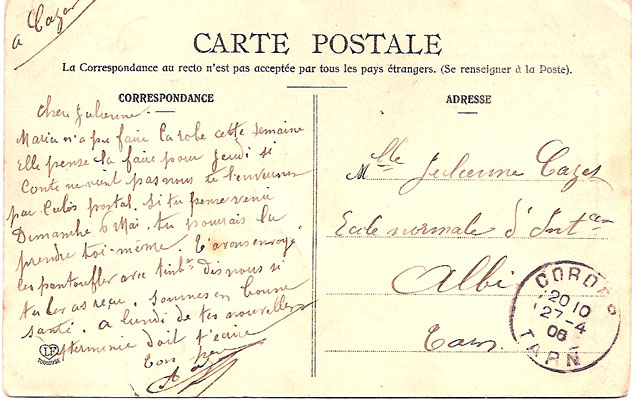 a Cazes
CARTE POSTALE
La Correspondance au recto n'est pas acceptée par tous les pays étrangers. (Se renseigner à la Poste).
CORRESPONDANCE
Chère Julienne.
Maria n'a pu faire la robe cette semaine
Elle pense la faire pour jeudi si
Conte ne vient pas nous te l'enverrons
par Colis postal. Si tu pense venir
Dimanche 6 Mai. tu pourais la
prendre toi-même. t'avons envoyé
les pantoufles avec dis nous si
tu les as reçu. Sommes en bonne
santé. a lundi de tes nouvelles
doit t'écrire
Ton père
LF
TOULOUSE
ADRESSE
Mlle Julienne Cazes
Ecole normale d'Inst
Albi
Tarn.
CORDES
20 10
27-4
06
TARN